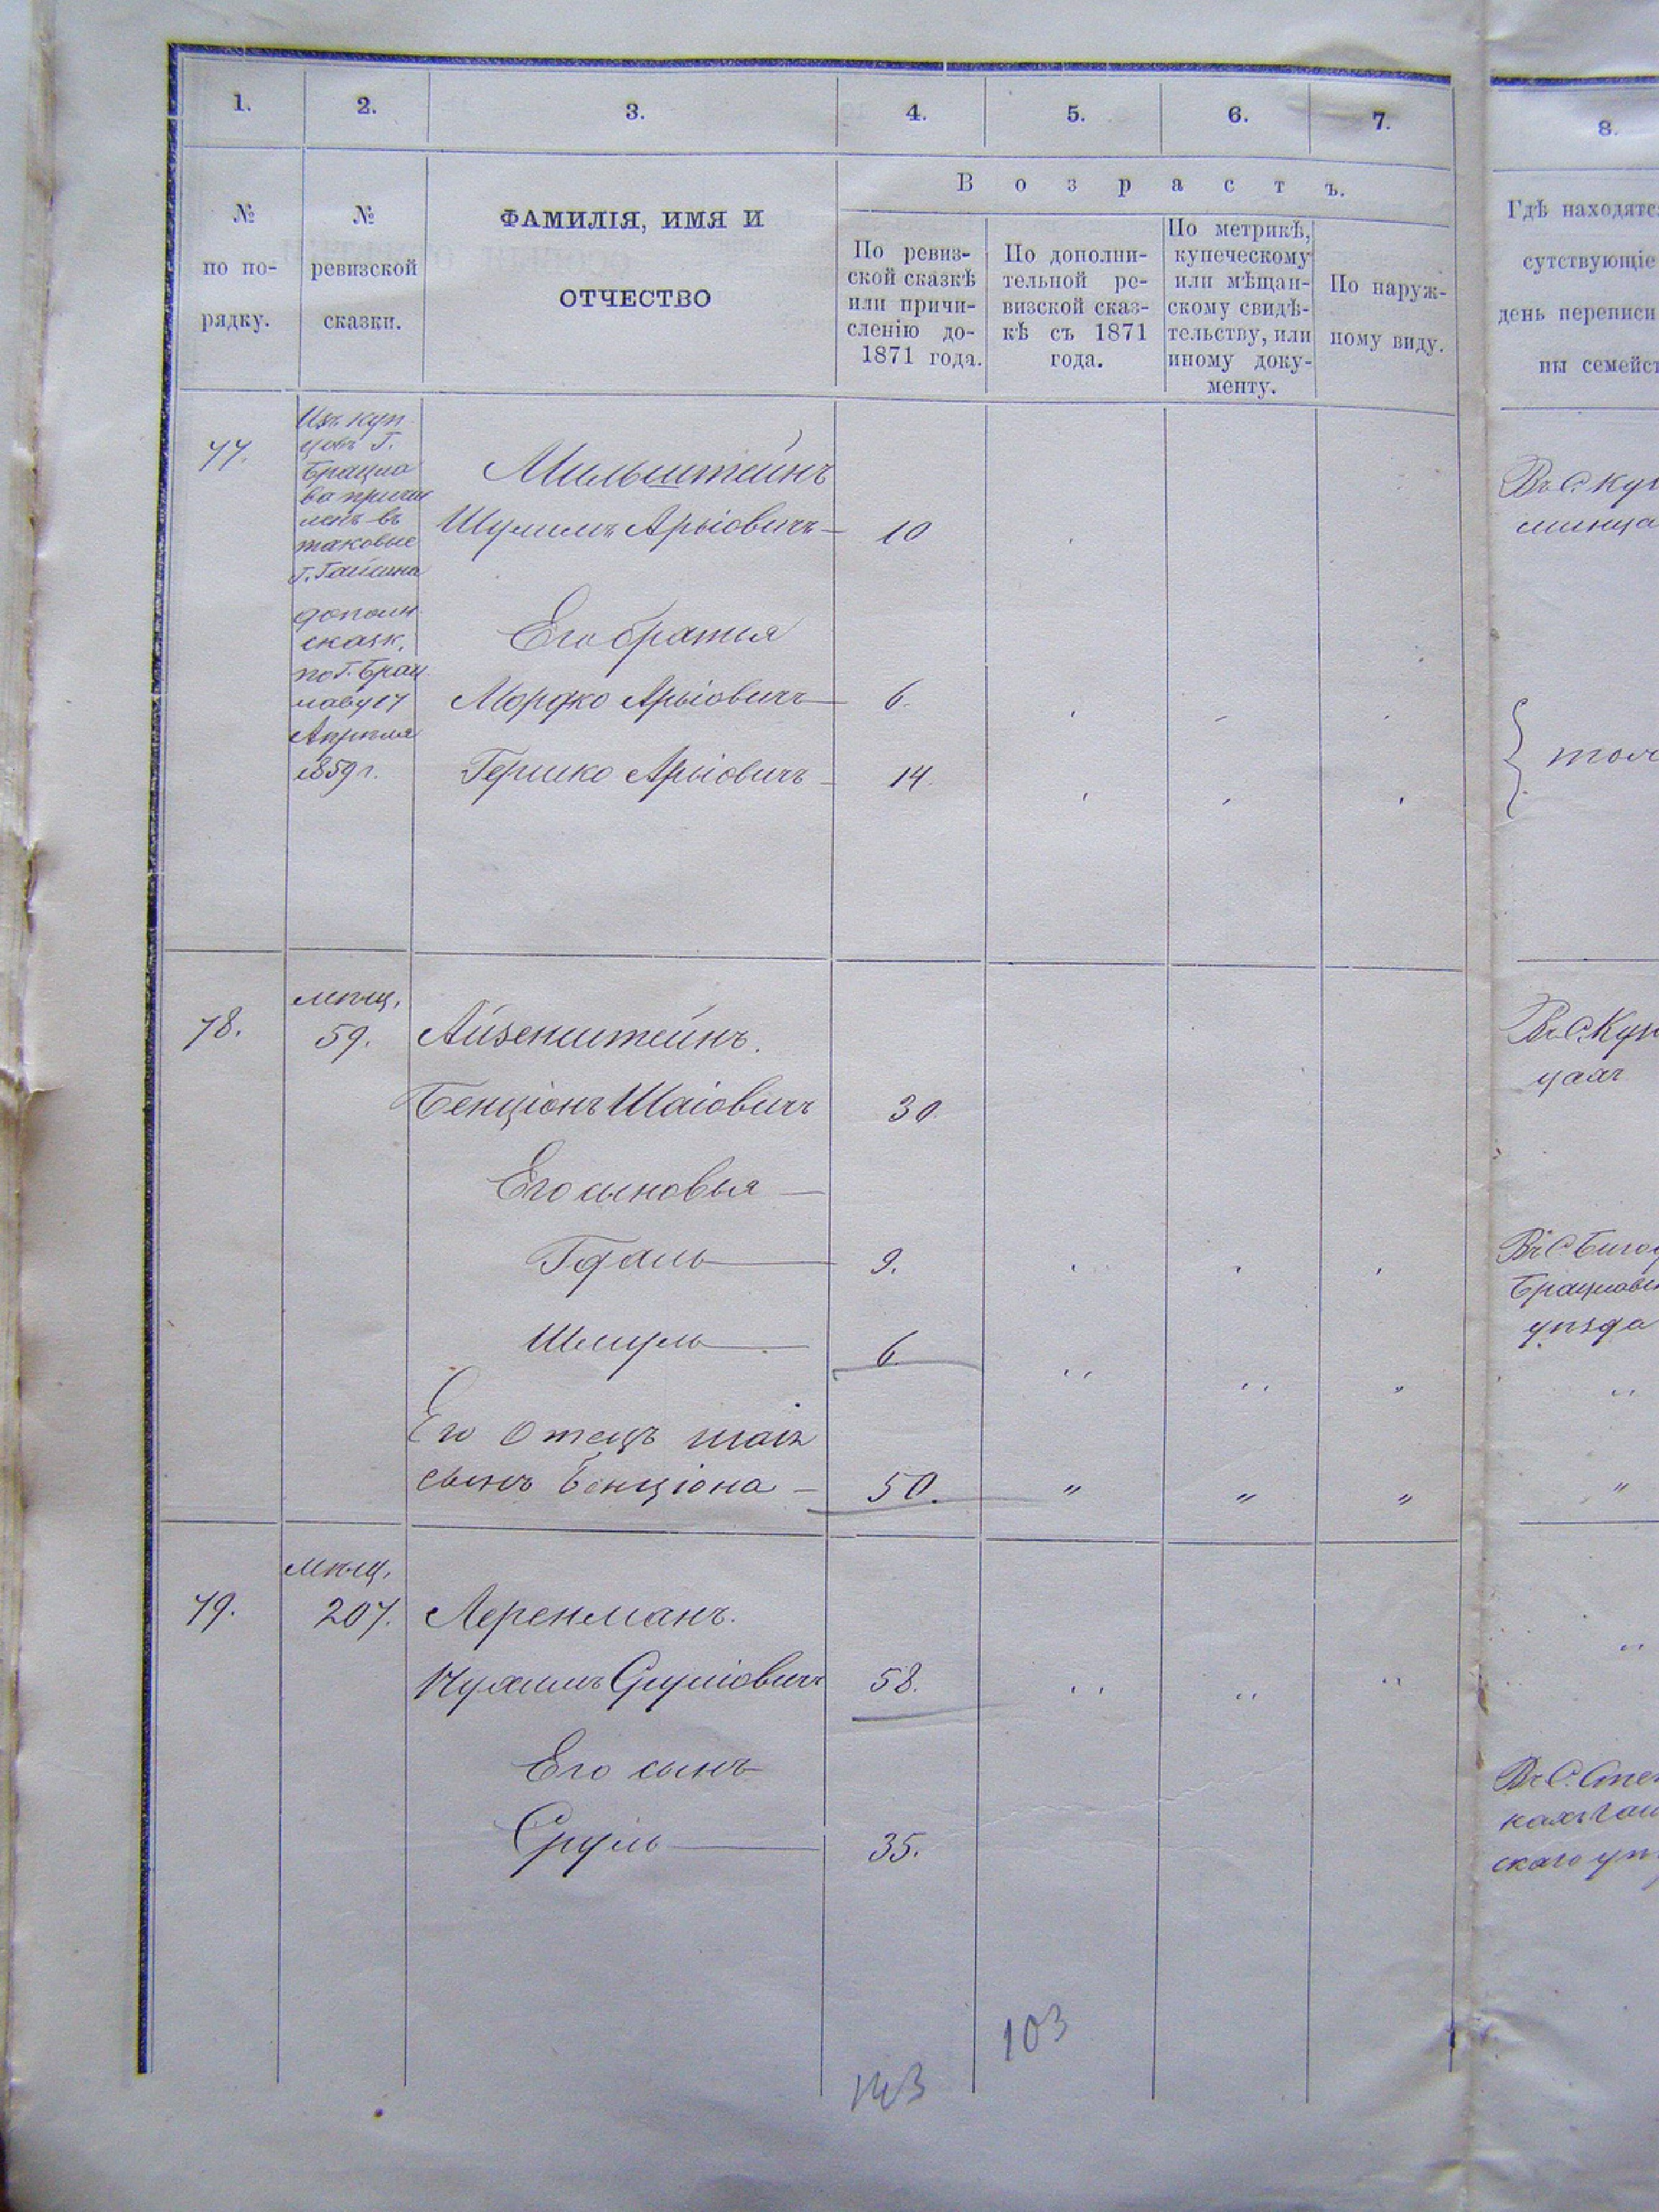 1. 2. 3. 4. 5. 6. 7. 8.
№
по по-
рядку.
№
ревизской
сказки.
ФАМИЛІЯ, ИМЯ И
ОТЧЕСТВО
Возрастъ.
По ревиз-
ской сказкѣ
или причи-
сленію до-
1871 года.
По дополни-
тельной ре-
визской сказ-
кѣ съ 1871
года.
По метрикѣ,
купеческому
или мѣщан-
скому свидѣ-
тельству, или
иному доку-
менту.
По наруж-
ному виду.
Гдѣ находятс
сутствующіе
день переписи
ны семейст
77.
Изъ куп
цовъ Г.
Брацла
ва причи
ленъ въ
таковые
Г. Гайсина
дополн.
сказк.
по Г. Брац
лаву 17
Апрѣля
1859 г.
Мильштейнъ
Шулимъ Арыовичъ — 10
Его братья
Мордко Арыовичъ — 6.
Гершко Арыовичъ — 14.
78.
мѣщ.
59.
Айзенштейнъ.
Бенціонъ Шаіовичъ 30.
Его сыновья —
Гдаль — 9.
Шмуль — 6
Его Отецъ шаія
сынъ Бенціона — 50. " " "
"
79.
мѣщ.
207.
Леренманъ.
Нухимъ Сруліовичъ 58.
Его сынъ
Сруль — 35.
Брацловск
уѣзда
скаго уѣ
103
143